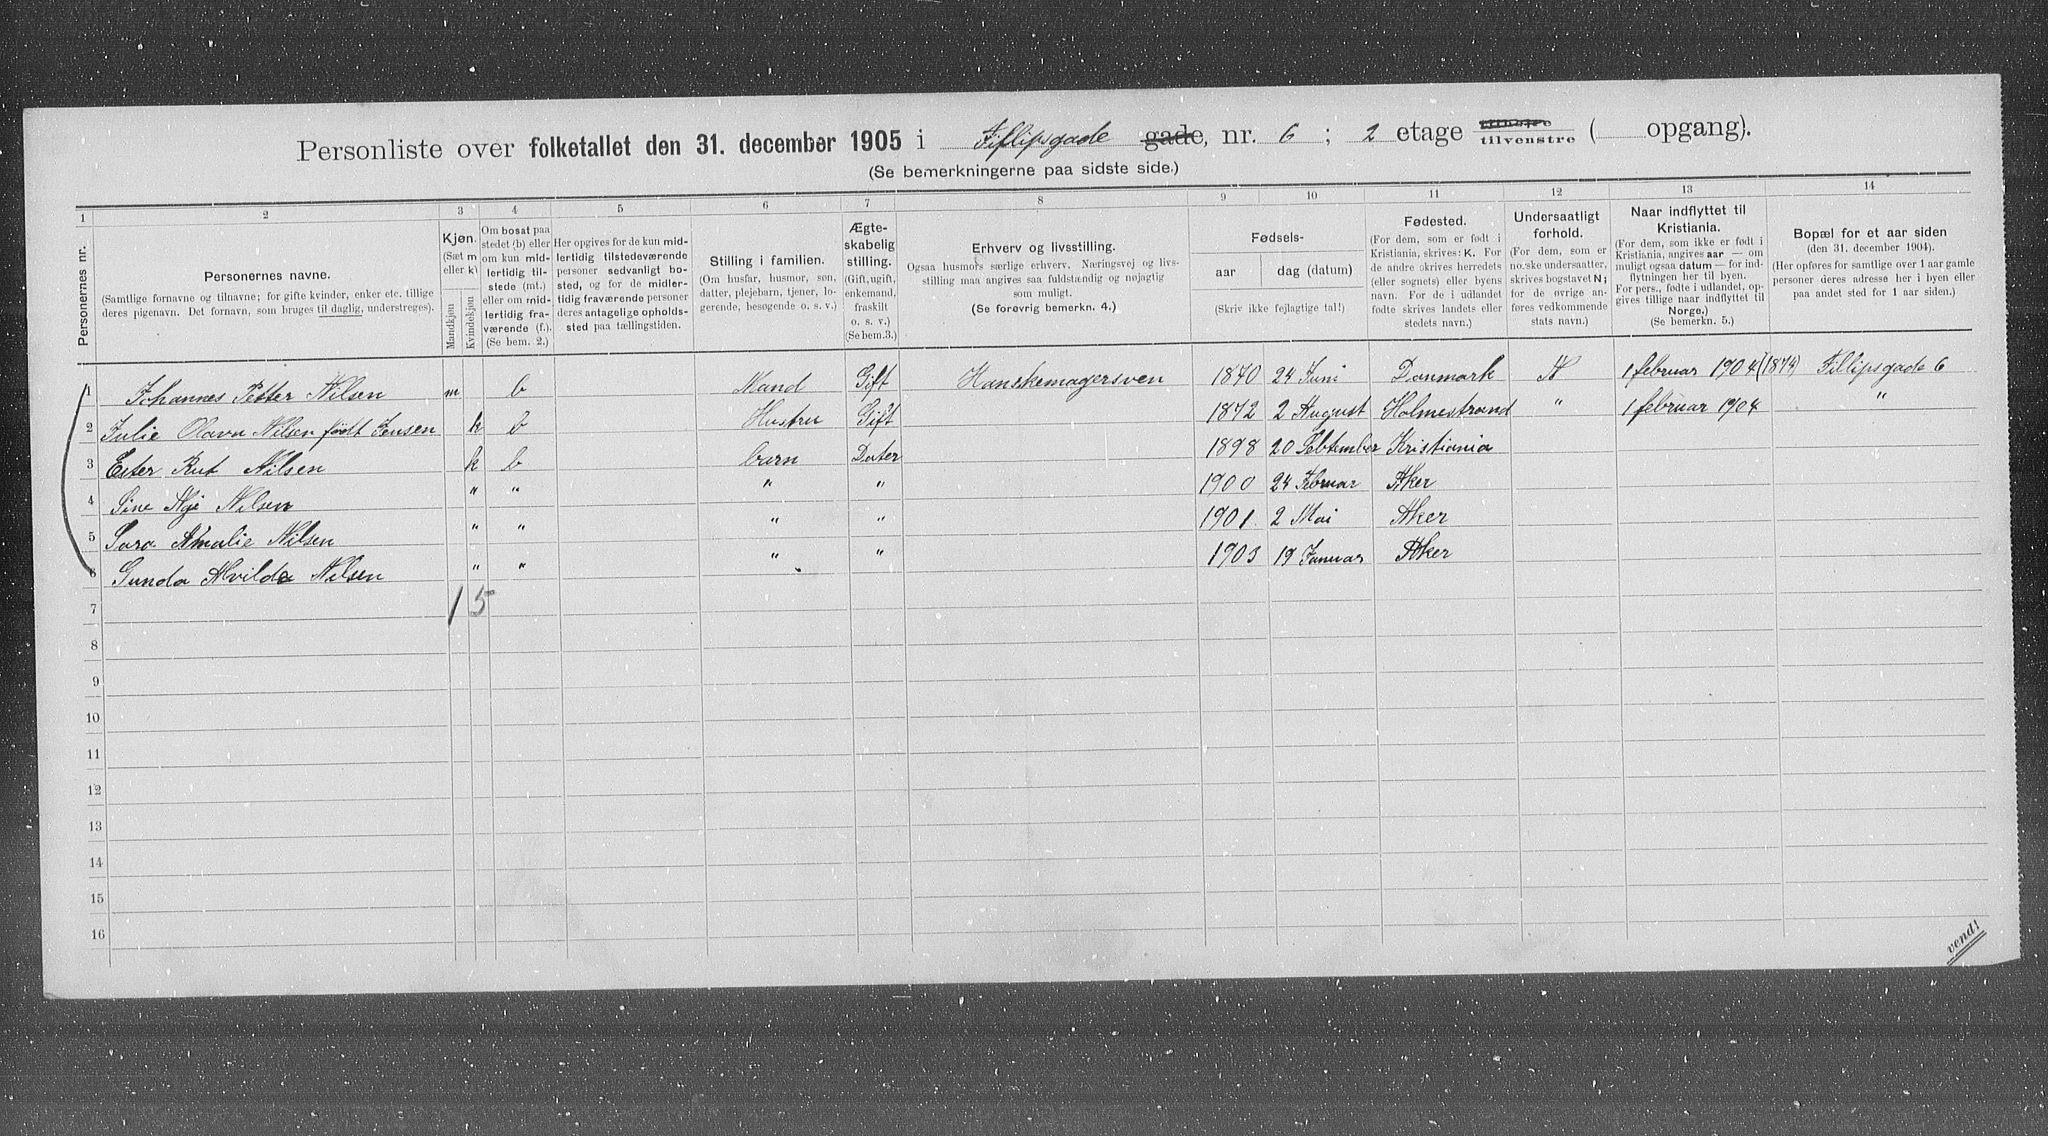 Personliste over folketallet den 31. december 1905 i Fillipsgade gade, nr. 6 ; 2 etage tilhøire tilvenstre ( opgang).
(Se bemerkningerne paa sidste side.)
1 2 3 4 5 6 7 8 9 10 11 12 13 14
Personernes nr.
Personernes navne.
(Samtlige fornavne og tilnavne; for gifte kvinder, enker etc. tillige
deres pigenavn. Det fornavn, som bruges til daglig, understreges).
Kjøn.
(Sæt m
eller k)
Mandkjøn
Kvindekjøn
Om bosat paa
stedet (b) eller
om kun mid-
lertidig til-
stede (mt.)
eller om mid-
lertidig fra-
værende (f.).
(Se bem. 2.)
Her opgives for de kun mid-
lertidig tilstedeværende
personer sedvanlig bo-
sted, og for de midler-
tidig fraværende personer
deres antagelige opholds-
sted paa tællingstiden.
Stilling i familien.
(Om husfar, husmor, søn,
datter, plejebarn, tjener, lo-
gerende, besøgende o. s. v.)
Ægte-
skabelig
stilling.
(Gift, ugift,
enkemand,
fraskilt
o. s. v.)
(Se bem. 3.)
Erhverv og livsstilling.
Ogsaa husmors særlige erhverv. Næringsvej og livs-
stilling maa angives saa fuldstændig og nøjagtig
som muligt.
(Se forøvrig bemerkn. 4.)
Fødsels-
aar dag (datum)
(Skriv ikke fejlagtige tal!)
Fødested.
(For dem, som er født i
Kristiania, skrives: K. For
de andre skrives herredets
(eller sognets) eller byens
navn. For de i udlandet
fødte skrives landets eller
stedets navn.)
Undersaatligt
forhold.
(For dem, som er
norske undersaatter,
skrives bogstavet N;
for de øvrige an-
føres vedkommende
stats navn.)
Naar indflyttet til
Kristiania.
(For dem, som ikke er født i
Kristiania, angives aar — om
muligt ogsaa datum — for ind-
flytningen her til byen.
For pers., fødte i udlandet, op-
gives tillige naar indflyttet til
Norge.)
(Se bemerkn. 5.)
Bopæl for et aar siden
(den 31. december 1904).
(Her opføres for samtlige over 1 aar gamle
personer deres adresse her i byen eller
paa andet sted for 1 aar siden.)
1 Johannes Petter Nilsen m b Mand Gift Hanskemagersven 1870 24 Juni Danmark N 1 februar 1904 (1874) Fillipsgade 6
2 Julie Olava Nilsen født Jensen k b Hustru Gift 1872 2 August Holmestrand " 1 februar 1904 "
3 Ester Rut Nilsen k b barn Dater 1898 20 Sebtember Kristiania
4 Sine Nilsen " " " " 1900 24 Februar Aker
5 Sara Amalie Nilsen " " " " 1901. 2 Mai Aker
6 Gunda Alvilde Nilsen " " " " 1903 19 Januar Aker
7 1 5
8
9
10
11
12
13
14
15
16
vend!